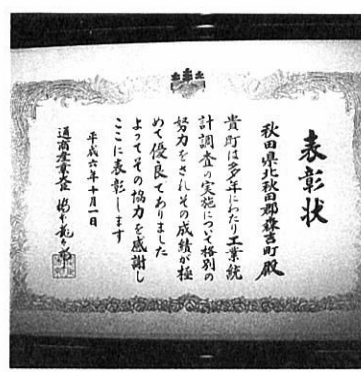 表彰状
秋田県北秋田郡森吉町殿
貴町は多年にわたり工業統
計調査の実施について格別の
努力をされその成績が極
めて優良でありました
よってその協力を感謝し
ここに表彰します
平成六年十月一日
通商産業大臣 橋本龍太郎